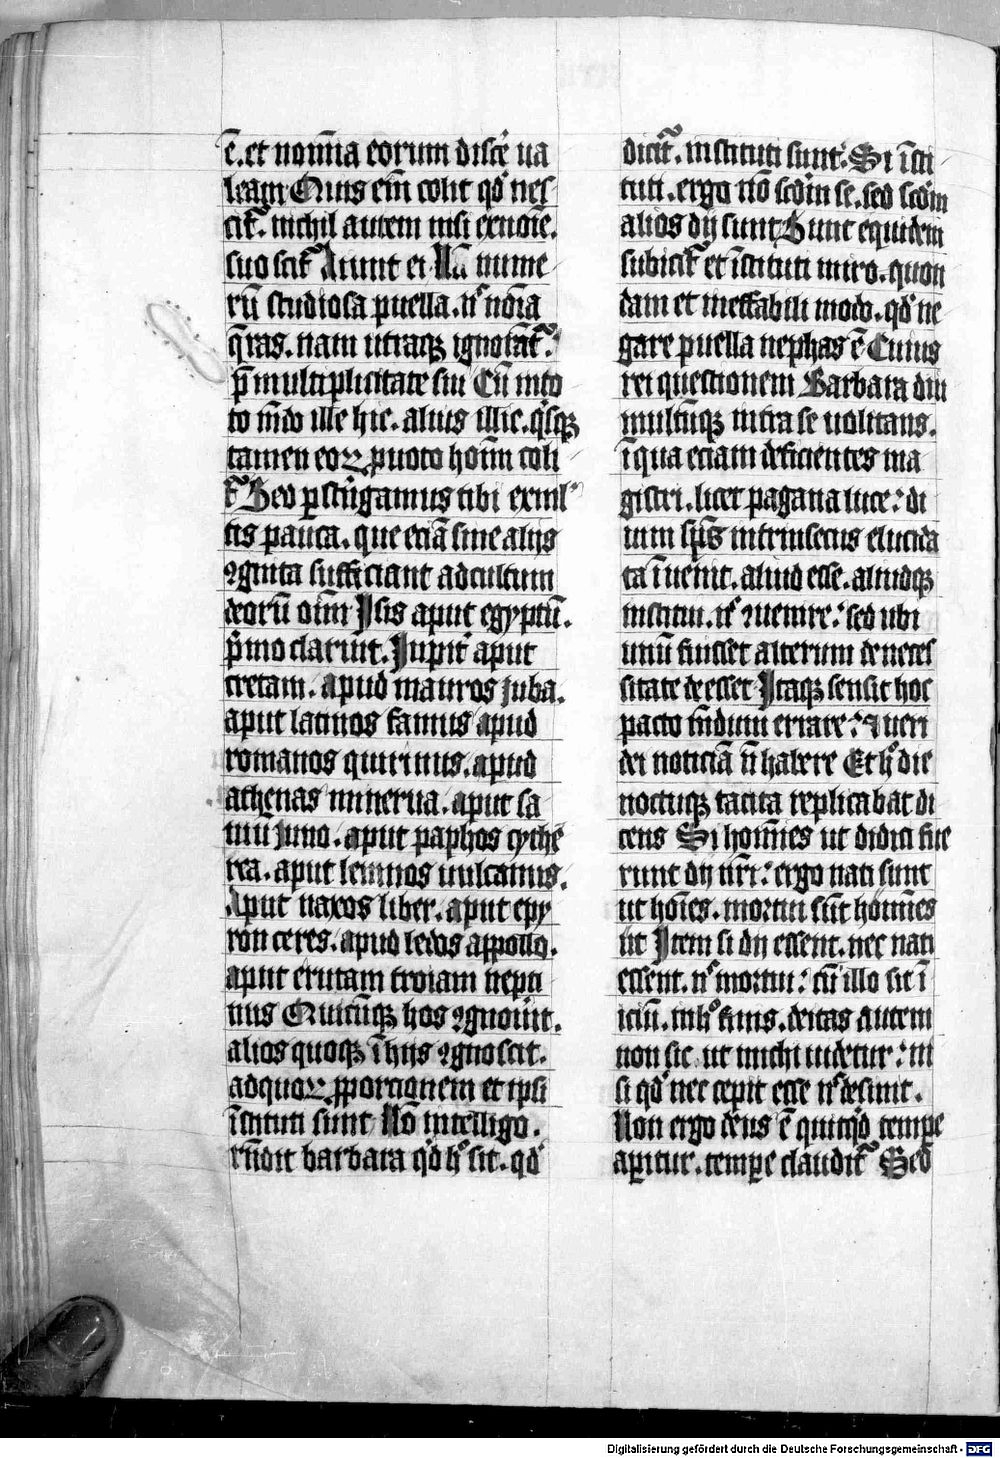 ē. et noīna eorum discē ua
leam Quis eīm colit qd' nes
cit᷑. nichil autem nisi ex noīe.
suo scit᷑ Aiunt ei Nā nume
rū studiosa puella. nͤ noīa
q̄ras. nam utraqꝫ ignorāt᷑.
p̄ multiplicitate sui Cū in to
to mūdo ille hic. alius illic. qͥsqꝫ
tamen eoꝝ ꝓ uoto hoīm coli
t᷑ Sed ꝑstrīgamus tibi ex mil
tis pauca. que eciā sine alijs
ꝯgnita sufficiant ad cultum
deorū oīm Isis aput egyptū.
p̄mo claruit. Iupit' aput
cretam. apud mauros juba.
aput latinos famus apud
romanos quirinus. apud
athenas minerua. aput sa
mū Juno. aput paphos cythe
rea. aput lemnos uulcanus.
Aput naxos liber. aput epy
ron ceres. apud ledos appollo.
aput erutam troiam neptu
nus Quicūqꝫ hos ꝯgnouit.
alios quoqꝫ ī hijs ꝯgnoscit.
ad quoꝝ ꝓporcionem et ipsi
īstituti sunt Nō intelligo.
rn̄dit barbara qd' hͦ sit. qd'
dicit᷑. instituti sunt. Si īsti
tuti. ergo nō scd'm se. sed scd'm
alios dij sunt Sunt equidem
subicit᷑ et īstituti miro. quon
dam et ineffabili modo. qd' ne
gare puella nephas ē Cuius
rei questionem Barbara diu
multūqꝫ intra se uolitans.
in qua eciam deficientes ma
gistri. licet pagana luce. di
uim sp̄s intrinsecus elucida
ta īuenit. aliud esse. aliudqꝫ
institui. nͤ ꝯuenire. sed ubi
unū fuisset alterum de neces
sitate deesset Itaqꝫ sensit hoc
pacto mūdum errare. ⁊ ueri
dei noticiā nō habere Et hͦ die
noctuqꝫ tacita replicabat di
cens Si homīes ut didici fue
runt dij nr̄i. ergo nati sunt
ut hoīes. mortui sūt ut homīes
ut Item si dij essent. nec nati
essent. nͤ mortui. cū illo sit ī
iciū. in hͦ finis. deitas autem
non sic ut michi uidetur. ni
si qd' nec cepit esse nͤ desinit.
Non ergo deus ē quicqͥd tempe
aperitur. tempe claudit᷑ Sed
Digitalisierung gefördert durch die Deutsche Forschungsgemeinschaft - DFG